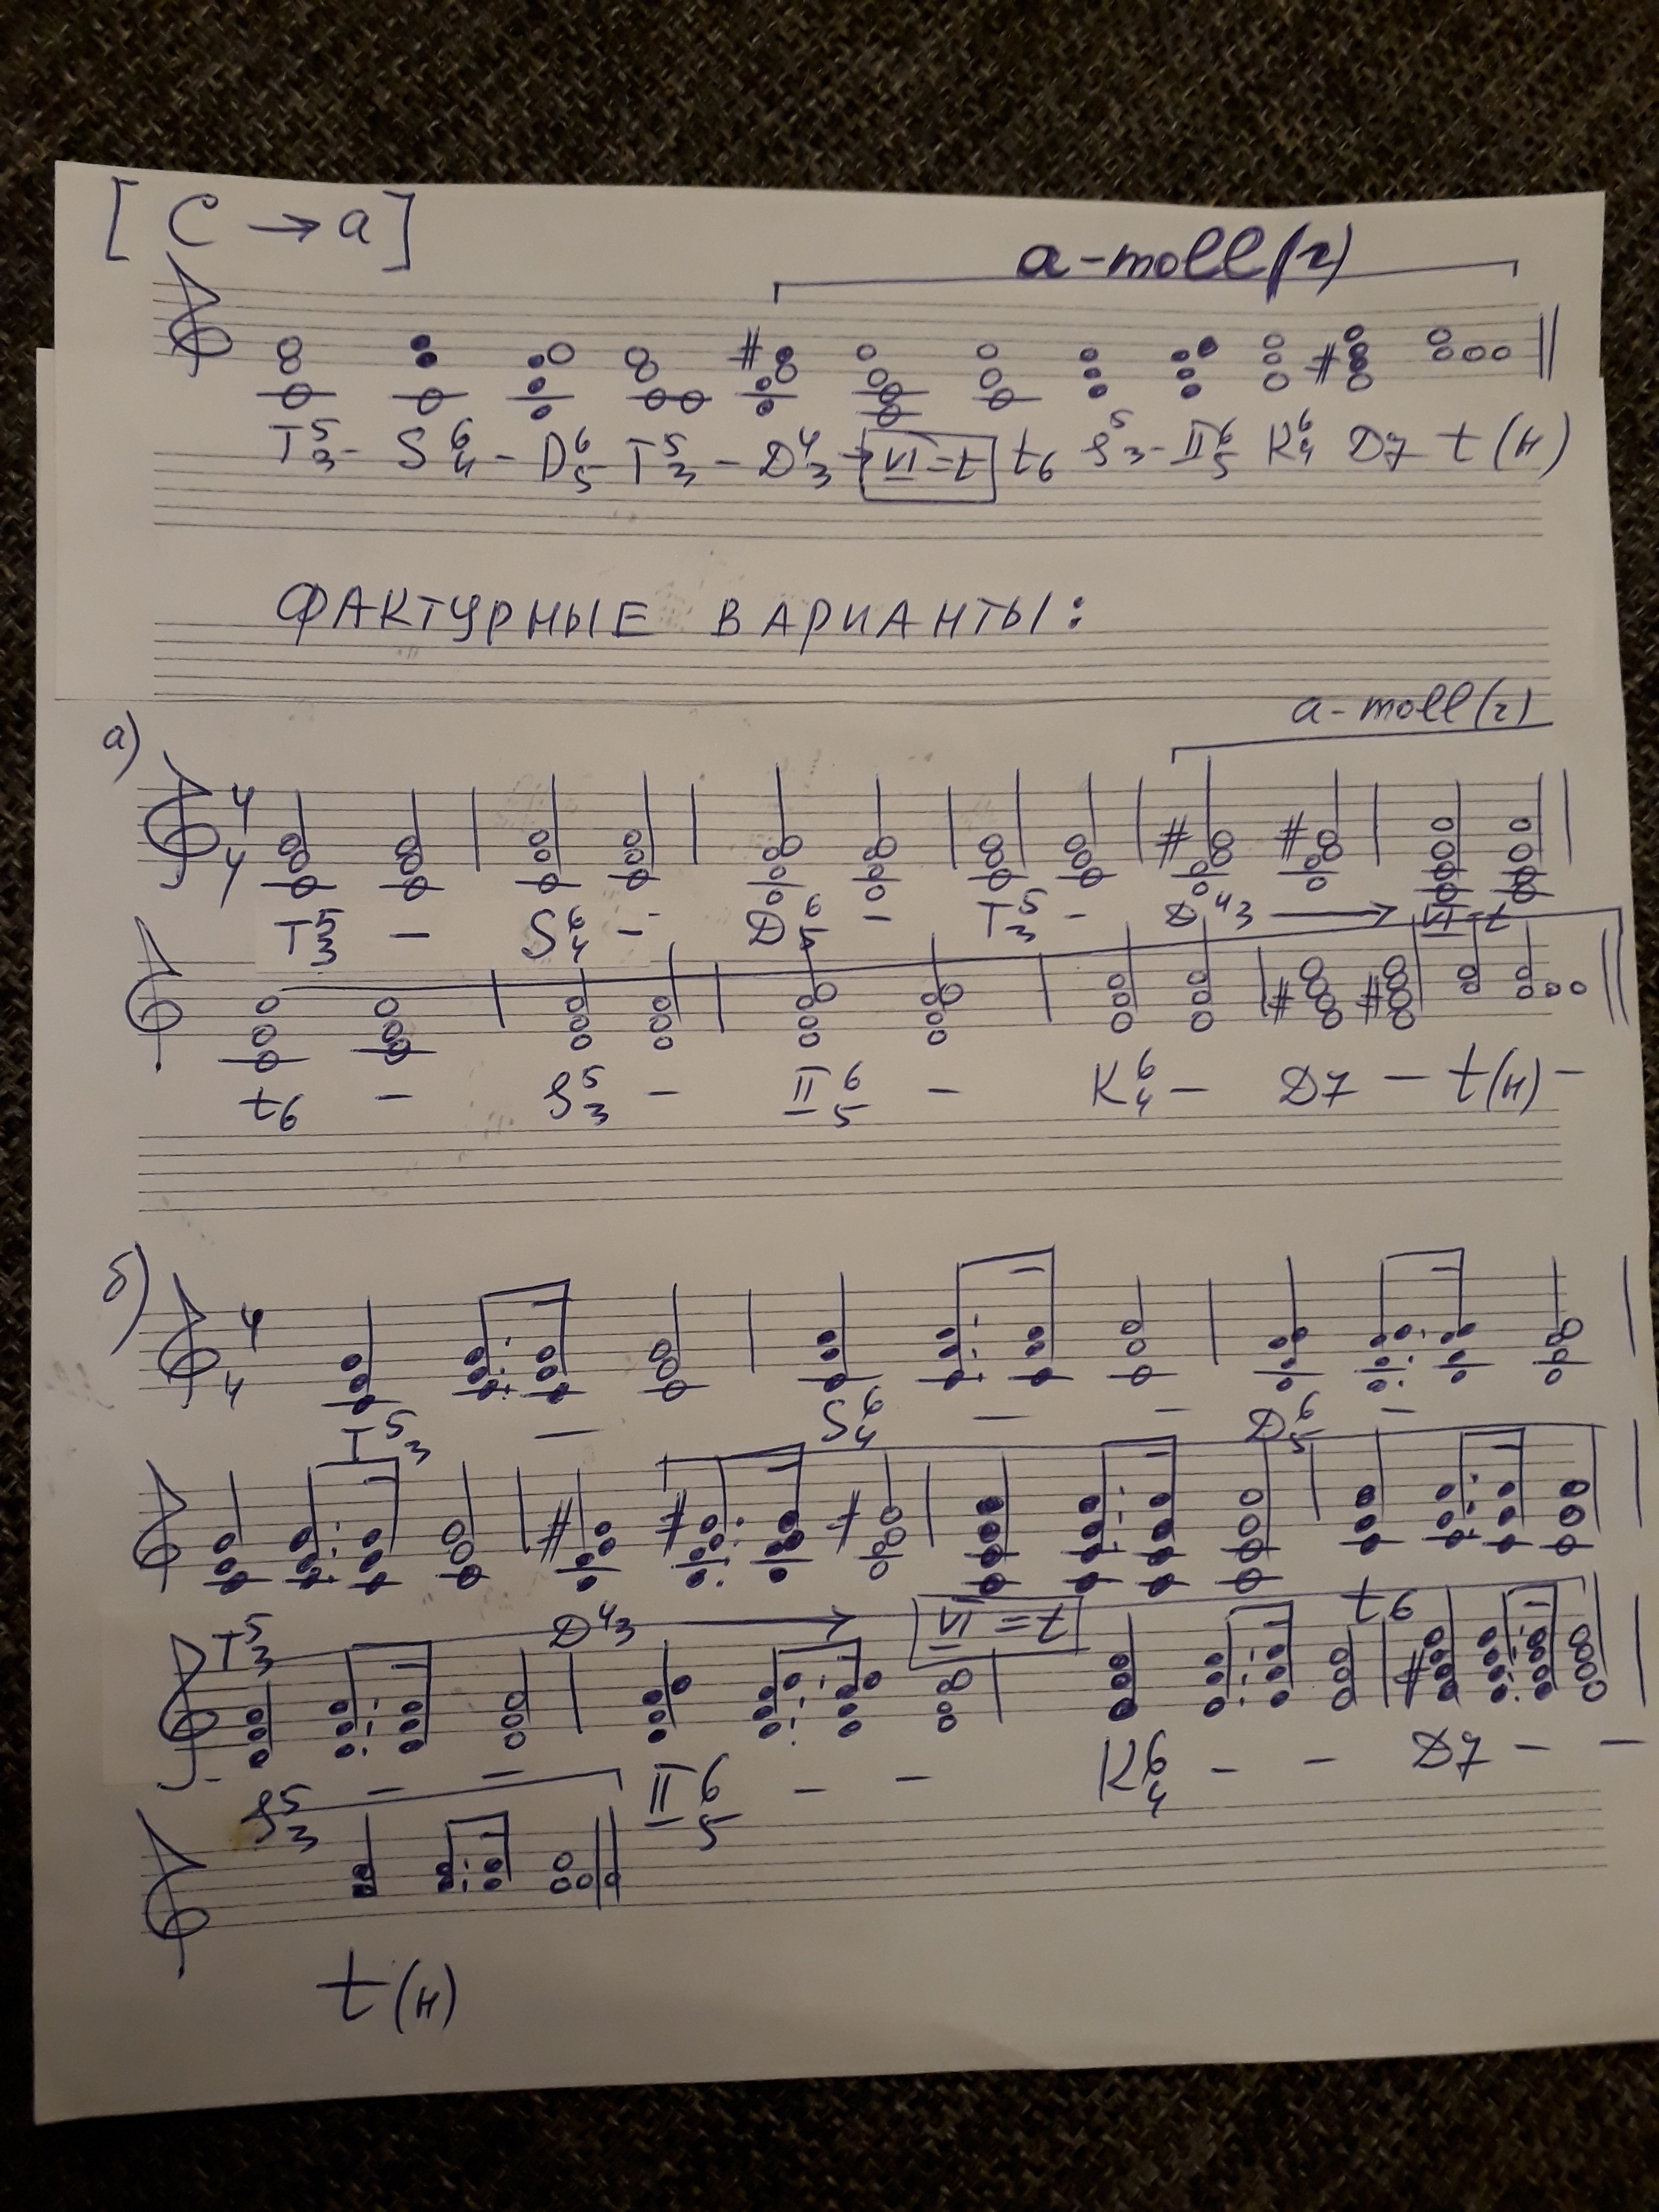 [ C → a ]
a-moll(г)
T 5 3 - S 6 4 - D 6 5 T 5 3 - D 4 3 → VI=t t6 S 5 3 - II 6 5 K 6 4 D7 t (н)
ФАКТУРНЫЕ ВАРИАНТЫ:
a-moll(г)
а)
4 4
T 5 3 - S 6 4 - D 6 5 - T 5 3 - D 4 3 → VI=t
t6 - S 5 3 - II 6 5 - K 6 4 - D7 - t(н) -
б)
4 4
T 5 3 - S 6 4 - - D 6 5 -
T 5 3 D 4 3 → VI = t t6
S 5 3 - - II 6 5 - - K 6 4 - - D7 - -
t (н)